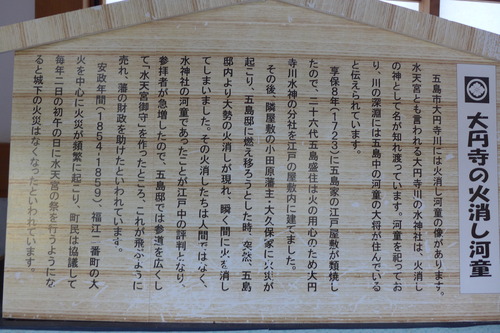 大円寺の火消し河童
五島市大円寺川には火消し河童の像があります。
水天宮とも言われる大円寺川の水神社は、火消し
の神として名が知れ渡っています。河童を祀ってお
り、川の深淵には五島中の河童の大将が住んでいる
と伝えられています。
享保8年(1723)に五島家の江戸屋敷が類焼し
たので、二十六代五島盛住は火の用心のため大円
寺川水神の分社を江戸の屋敷内に建てました。
その後、隣屋敷の小田原藩主・大久保家に火災が
起こり、五島邸に燃え移ろうとした時、突然、五島
邸内より大勢の火消しが現れ、瞬く間に火を消し
てしまいました。その火消したちは人間ではなく、
水神社の河童であったことが江戸中の評判となり、
参拝者が急増したので、五島邸では参道を広くし
て「水天宮御守」を作ったところ、これが飛ぶように
売れ、藩の財政を助けたといわれています。
安政年間(1854-1859)、福江一番町の大
火を中心に火災が頻繁に起こり、町民は協議して
毎年二日の初午の日に水天宮の祭を行うようにな
ると城下の火災はなくなったといわれています。